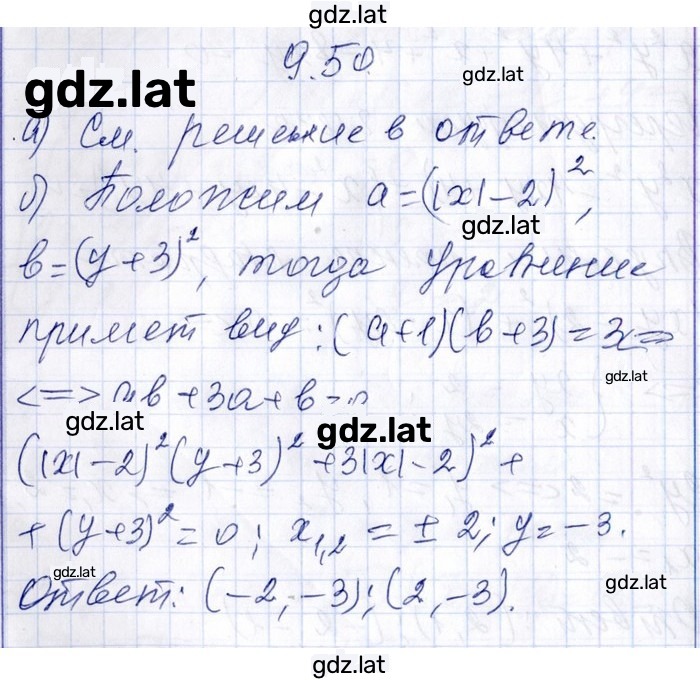 gdz.lat
9.50.
gdz.lat
gdz.lat
а) См. решение в ответе.
б) Положим a=(|x|-2)²,
gdz.lat
b=(y+3)², тогда уравнение
примет вид: (a+1)(b+3)=3<=>
gdz.lat
<=> ab+3a+b=0
gdz.lat
gdz.lat
(|x|-2)²(y+3)²+3|x|-2)²+
+(y+3)²=0; x₁,₂=±2; y=-3.
gdz.lat
gdz.lat
Ответ: (-2,-3); (2,-3).
gdz.lat